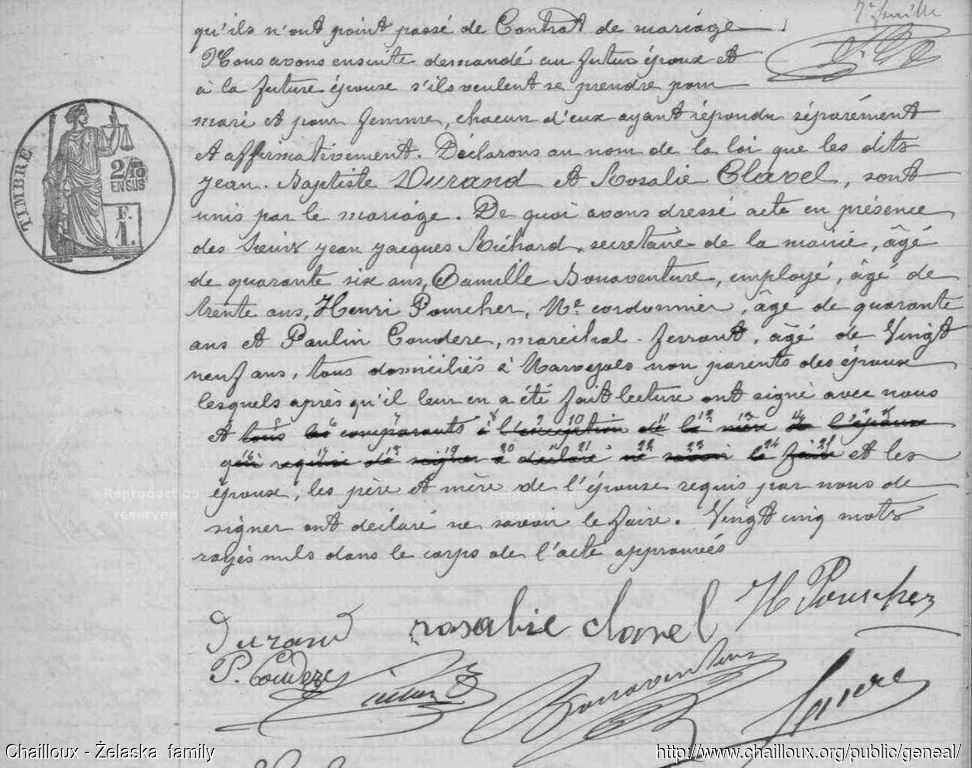 7e feuille
qu'ils n'ont point passé de Contrat de mariage
Nous avons ensuite demandé au futur époux et
à la future épouse s'ils veulent se prendre pour
mari et pour femme, chacun d'eux ayant répondu séparément
et affirmativement. Déclarons au nom de la loi que les dits
Jean-Baptiste Durand et Rosalie Clavel, sont
unis par le mariage. De quoi avons dressé acte en présence
des Sieurs Jean Jacques Richard, secrétaire de la mairie, âgé
de quarante six ans, Camille Bonaventure, employé, âgé de
trente ans, Henri Pourcher, Me cordonnier, âgé de quarante
ans et Paulin Couderc, maréchal-ferrant, âgé de Vingt
neuf ans, tous domiciliés à Marvejols non parents des époux
lesquels après qu'il leur en a été fait lecture ont signé avec nous
et tous les comparants à l'exception de la mère de l'épouse
qui requise de signer a déclaré ne savoir le faire et les
époux, les père et mère de l'épouse requis par nous de
signer ont déclaré ne savoir le faire. Vingt cinq mots
rayés nuls dans le corps de l'acte approuvés
TIMBRE
2/10
EN SUS
F.
1.
Durand rosalie clavel H Pourcher
P. Couderc Richard Bonaventure
Reproduction
réservée
Reproduction
réservée
Chailloux - Želaska family
http://www.chailloux.org/public/geneal/